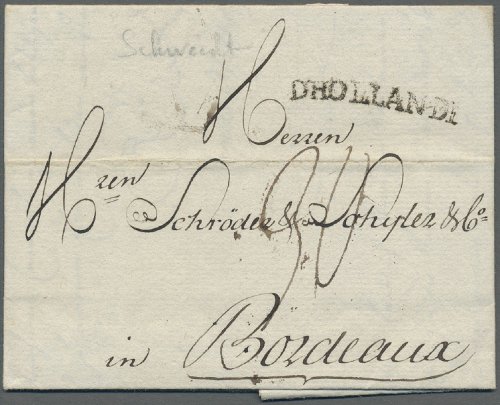 Schwedt
DHOLLANDE
Herren
Hren Schröder & Schyler & Co
34
in Bördeaux